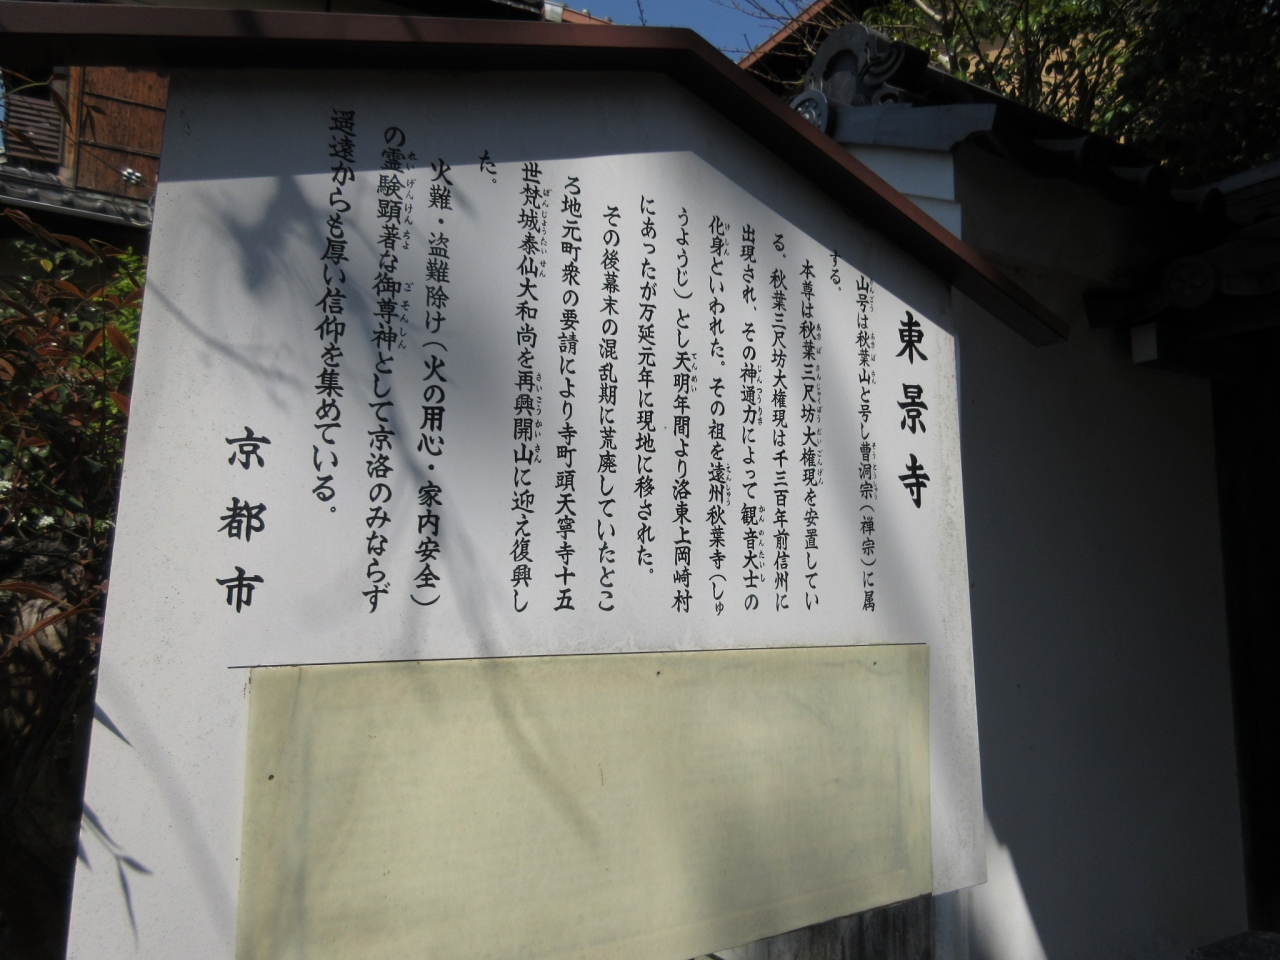 東景寺
山号は秋葉山と号し曹洞宗（禅宗）に属
する。
本尊は秋葉三尺坊大権現を安置してい
る。秋葉三尺坊大権現は千三百年前信州に
出現され、その神通力によって観音大士の
化身といわれた。その祖を遠州秋葉寺（しゅ
うようじ）とし天明年間より洛東上岡崎村
にあったが万延元年に現地に移された。
その後幕末の混乱期に荒廃していたとこ
ろ地元町衆の要請により寺町頭天寧寺十五
世梵城泰仙大和尚を再興開山に迎え復興し
た。
火難・盗難除け（火の用心・家内安全）
の霊験顕著な御尊神として京洛のみならず
遥遠からも厚い信仰を集めている。
京都市